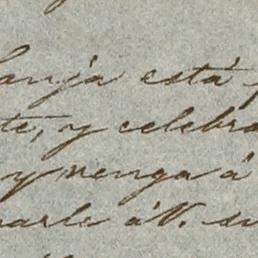 está
te, y celebra
y venga á
arle á V. su